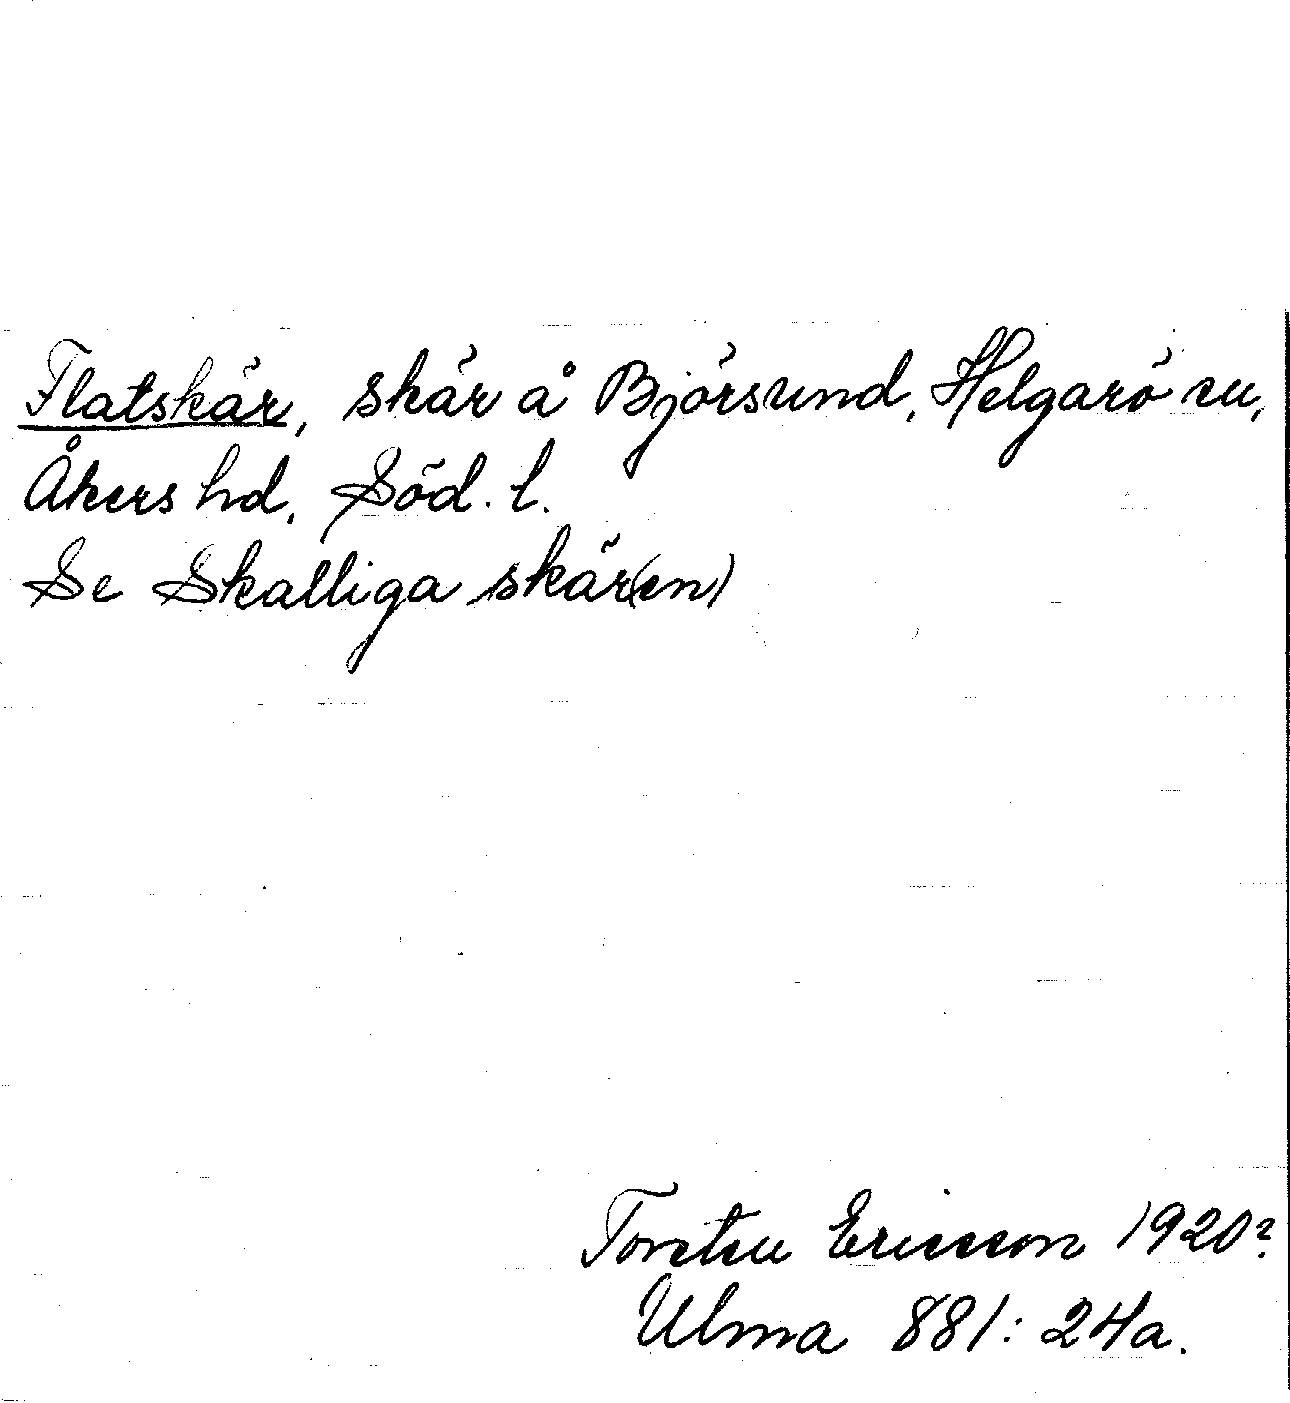 Flatskär, skär å Björsund, Helgarö sn,
Åkers hd, Söd. l.
Se Skalliga skär(en)
Torsten Ericsson 1920?
Ulma 881:24a.